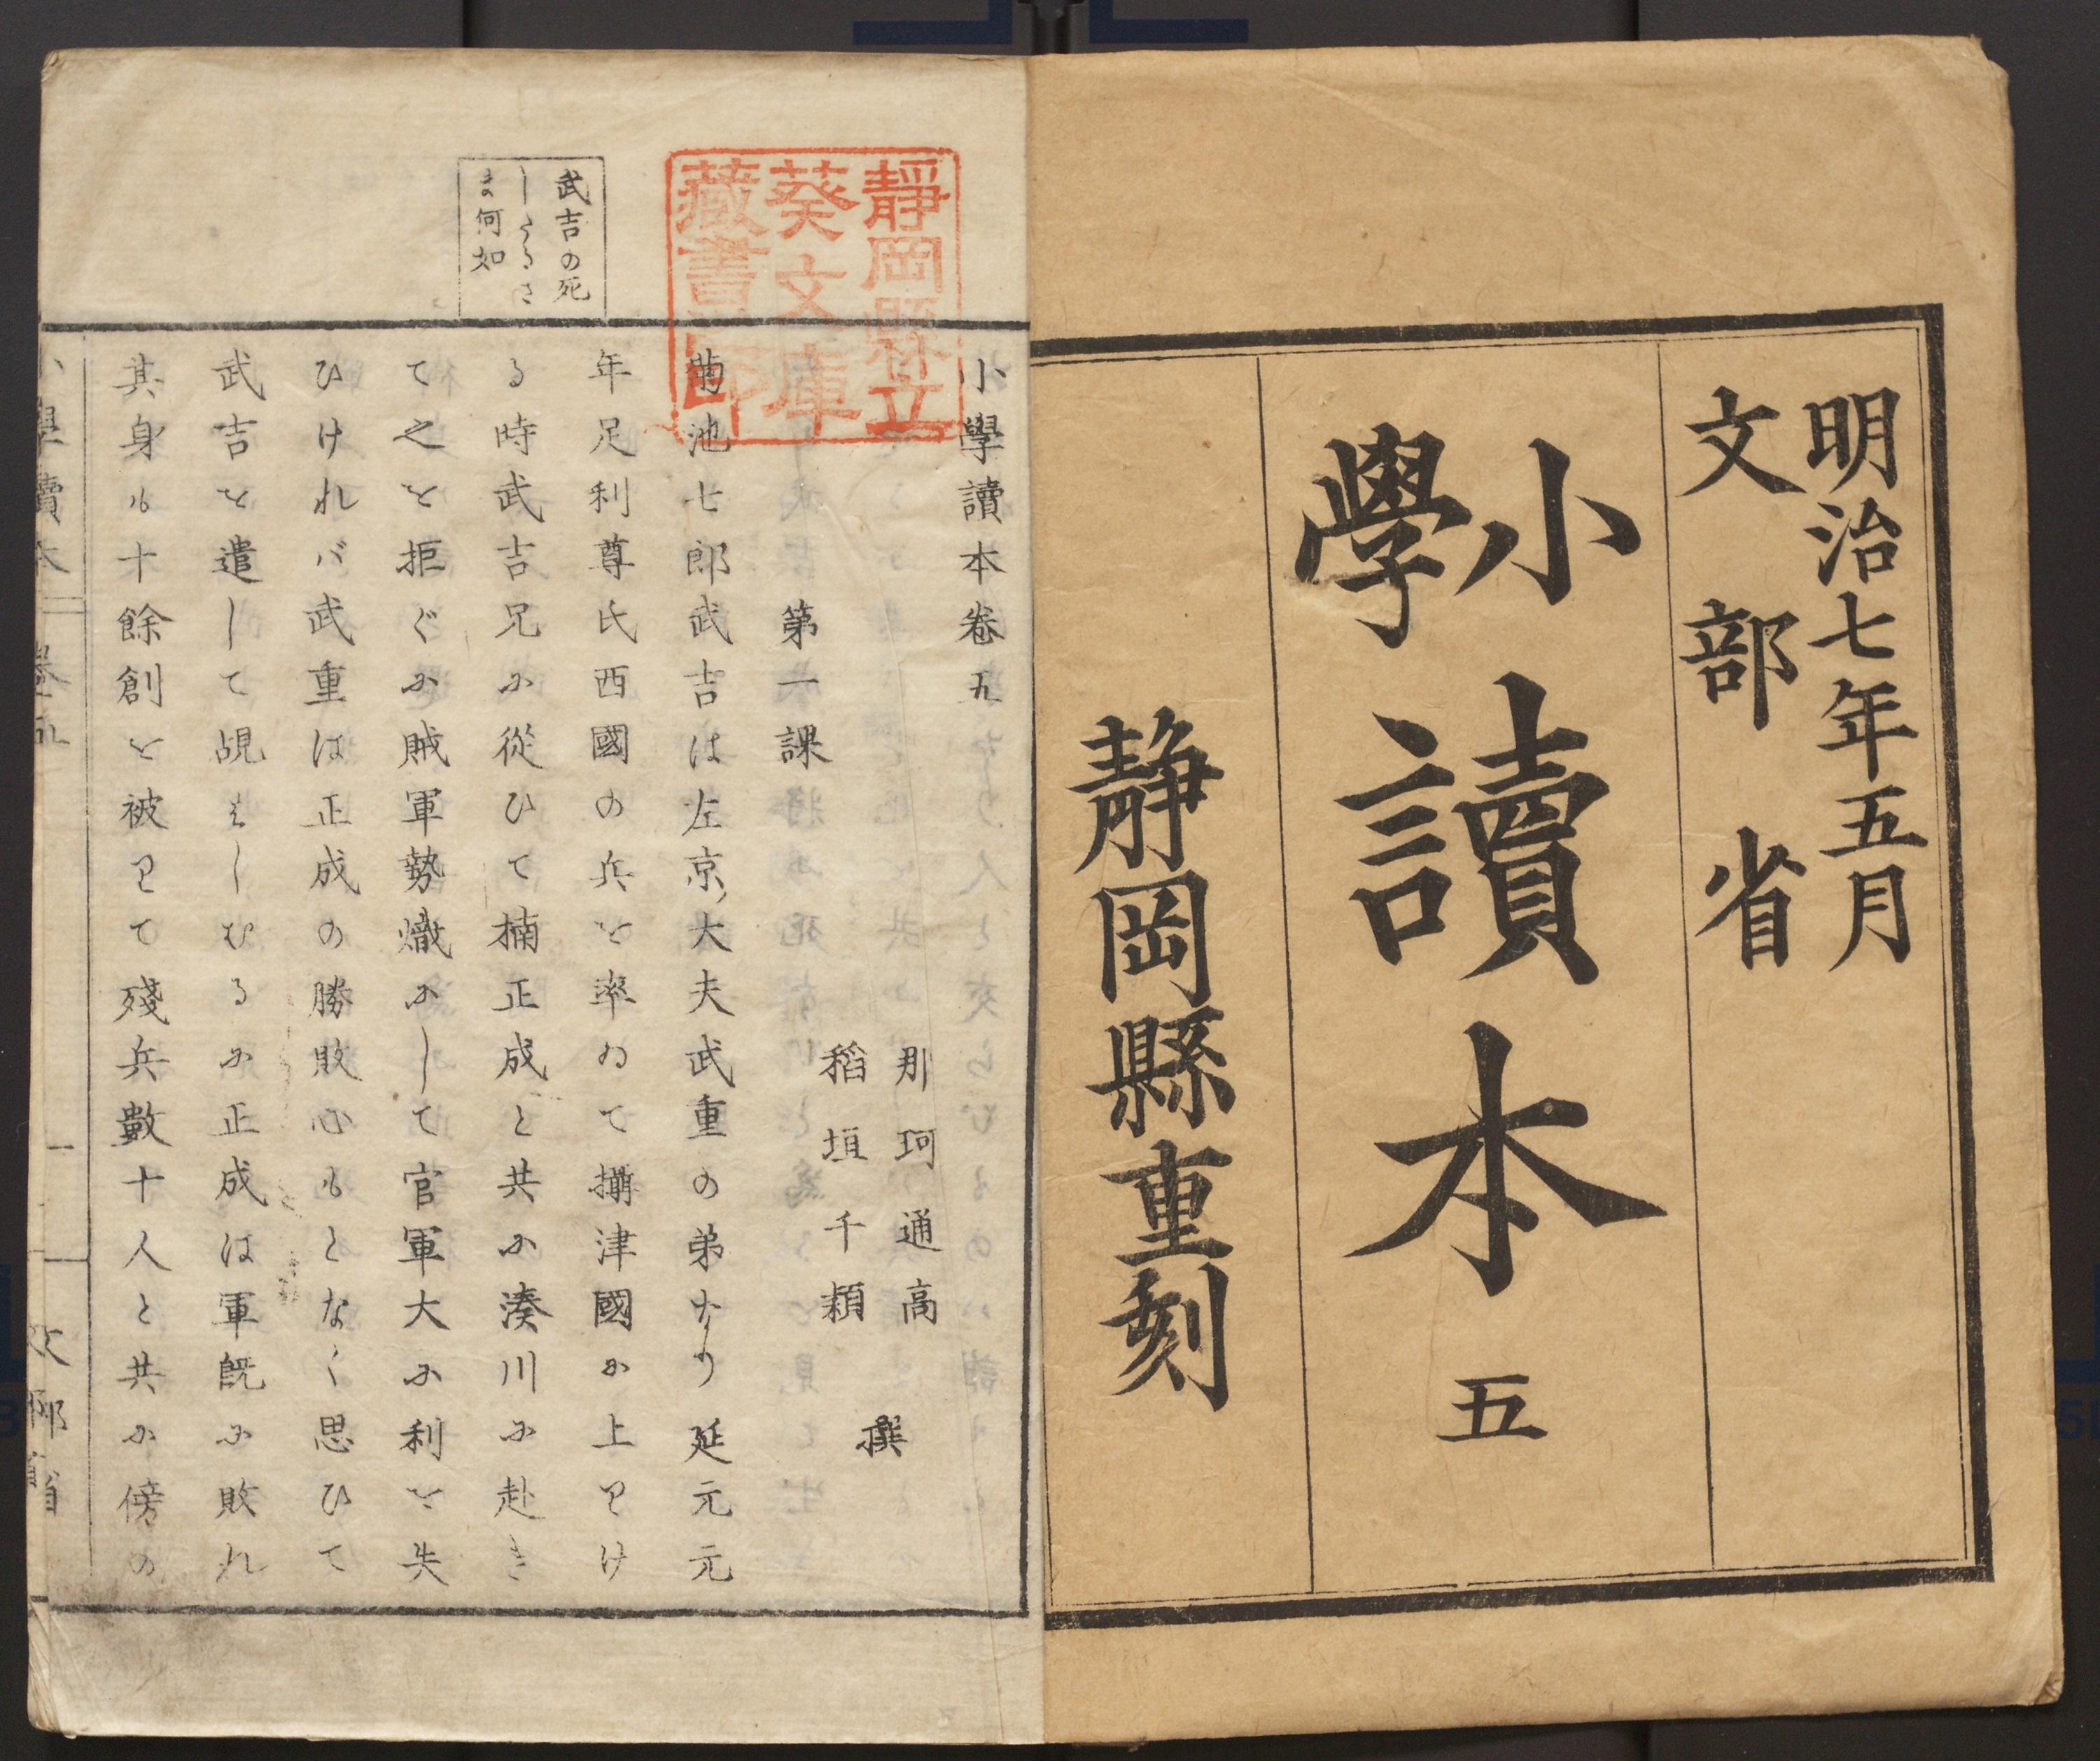 明治七年五月
文部省
小學讀本 五
静岡縣重刻
靜岡縣立
葵文庫
藏書印
小學讀本卷五
那珂通高
稻垣千穎
撰
第一課
菊池七郎武吉は左京大夫武重の弟なり延元元
年足利尊氏西國の兵を率ゐて攝津國に上りけ
る時武吉兄に從ひて楠正成と共に湊川に赴き
て之を拒ぐに賊軍勢熾にして官軍大に利を失
ひけれバ武重は正成の勝敗心もとなく思ひて
武吉を遣して覘はしむるに正成は軍既に敗れ
其身も十餘創を被りて殘兵數十人と共に傍の
武吉の死
したるさ
ま何如
小學讀本 卷五 一 文部省